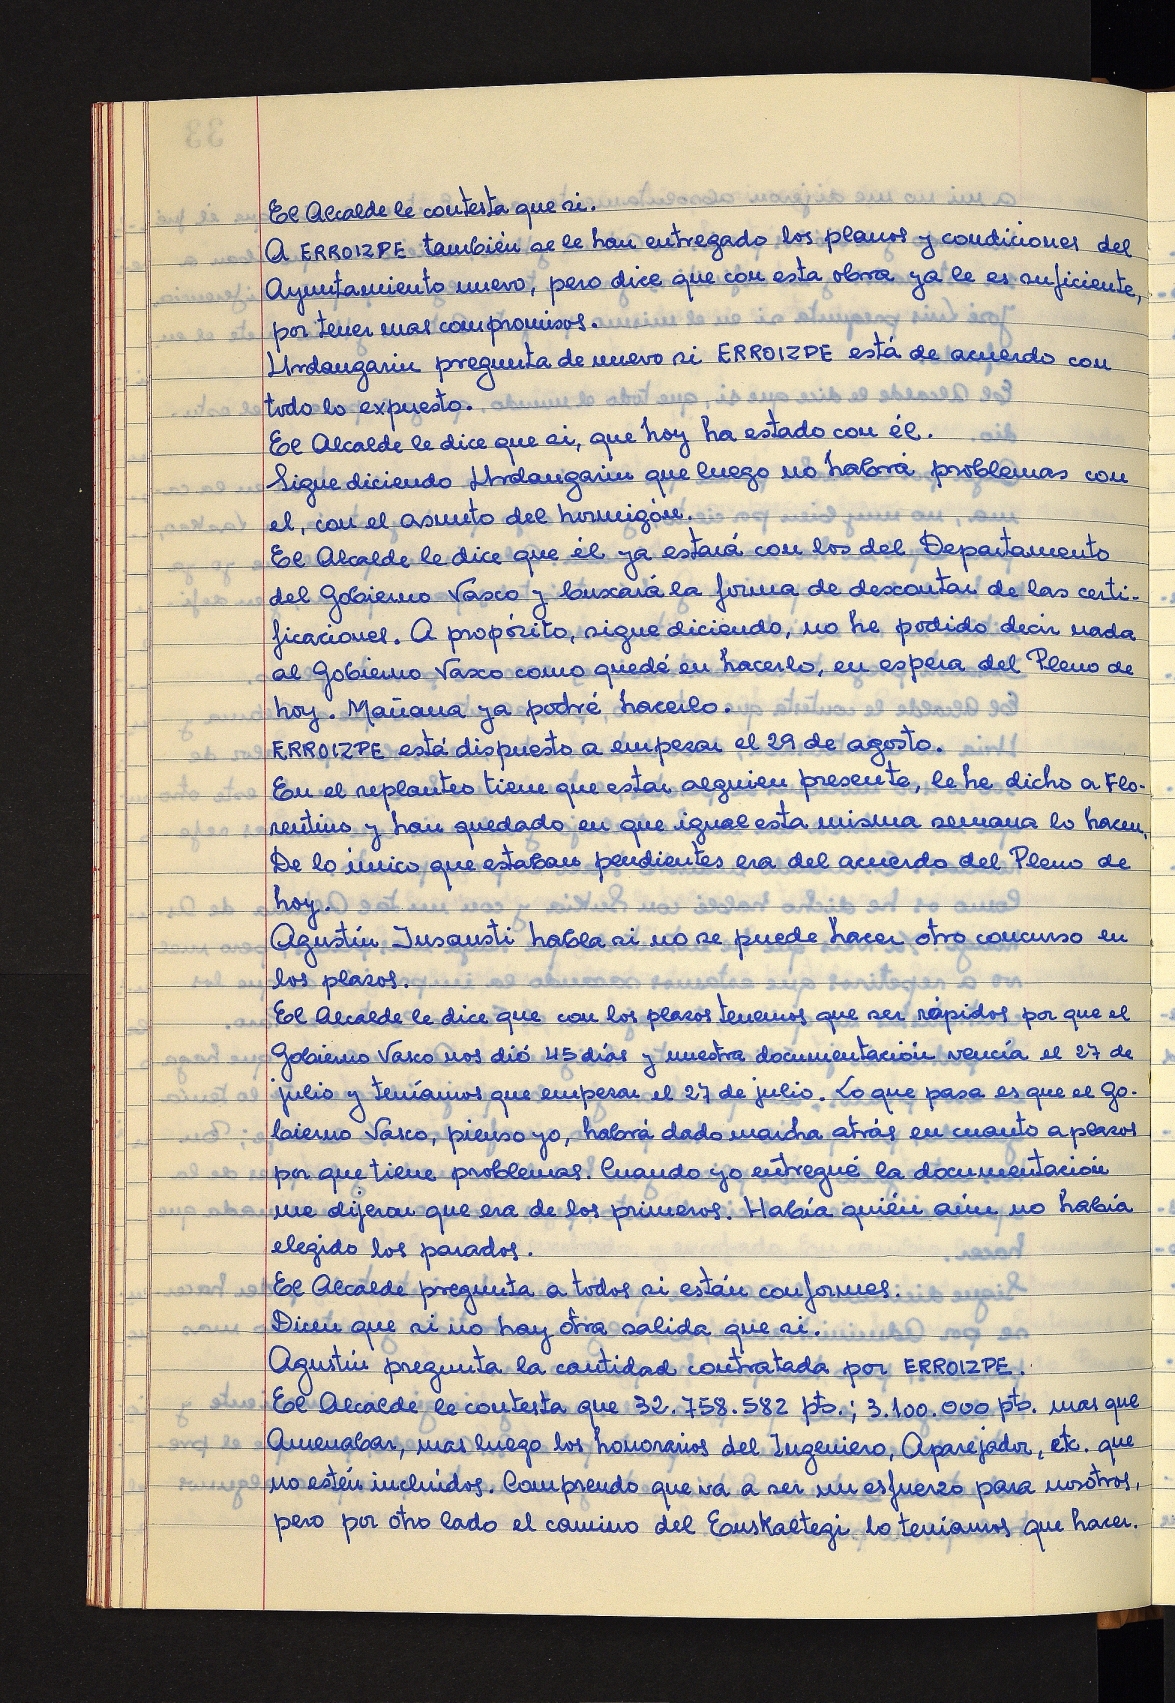 El Alcalde le contesta que si.
A ERROIZPE también se le han entregado los planos y condiciones del
Ayuntamiento nuevo, pero dice que con esta obra ya le es suficiente,
por tener mas compromisos.
Urdangarin pregunta de nuevo si ERROIZPE está de acuerdo con
todo lo expuesto.
El Alcalde le dice que si, que hoy ha estado con él.
Sigue diciendo Urdangarin que luego no habrá problemas con
el, con el asunto del hormigón.
El Alcalde le dice que él ya estará con los del Departamento
del Gobierno Vasco y buscará la forma de descontar de las certi-
ficaciones. A propósito, sigue diciendo, no he podido decir nada
al Gobierno Vasco como quedé en hacerlo, en espera del Pleno de
hoy. Mañana ya podré hacerlo.
ERROIZPE está dispuesto a empezar el 29 de agosto.
En el replanteo tiene que estar alguien presente, le he dicho a Flo-
rentino y han quedado en que igual esta misma semana lo hacen.
De lo único que estaban pendientes era del acuerdo del Pleno de
hoy.
Agustín Insausti habla si no se puede hacer otro concurso en
los plazos.
El Alcalde le dice que con los plazos tenemos que ser rápidos por que el
Gobierno Vasco nos dió 45 días y nuestra documentación vencía el 27 de
julio y teníamos que empezar el 27 de julio. Lo que pasa es que el Go-
bierno Vasco, pienso yo, habrá dado marcha atrás en cuanto a plazos
por que tiene problemas. Cuando yo entregué la documentación
me dijeron que era de los primeros. Había quién aún no había
elegido los parados.
El Alcalde pregunta a todos si están conformes.
Dicen que si no hay otra salida que si.
Agustín pregunta la cantidad contratada por ERROIZPE.
El Alcalde le contesta que 32.758.582 pts.; 3.100.000 pts. mas que
Amenabar, mas luego los honorarios del Ingeniero, Aparejador, etc. que
no estén incluídos. Comprendo que va a ser un esfuerzo para nosotros,
pero por otro lado el camino del Euskaltegi lo teníamos que hacer.